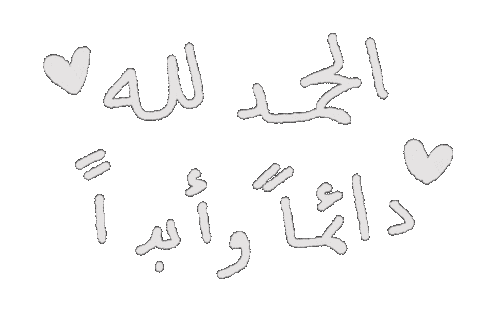 الحمد لله
دائمًا وأبداً